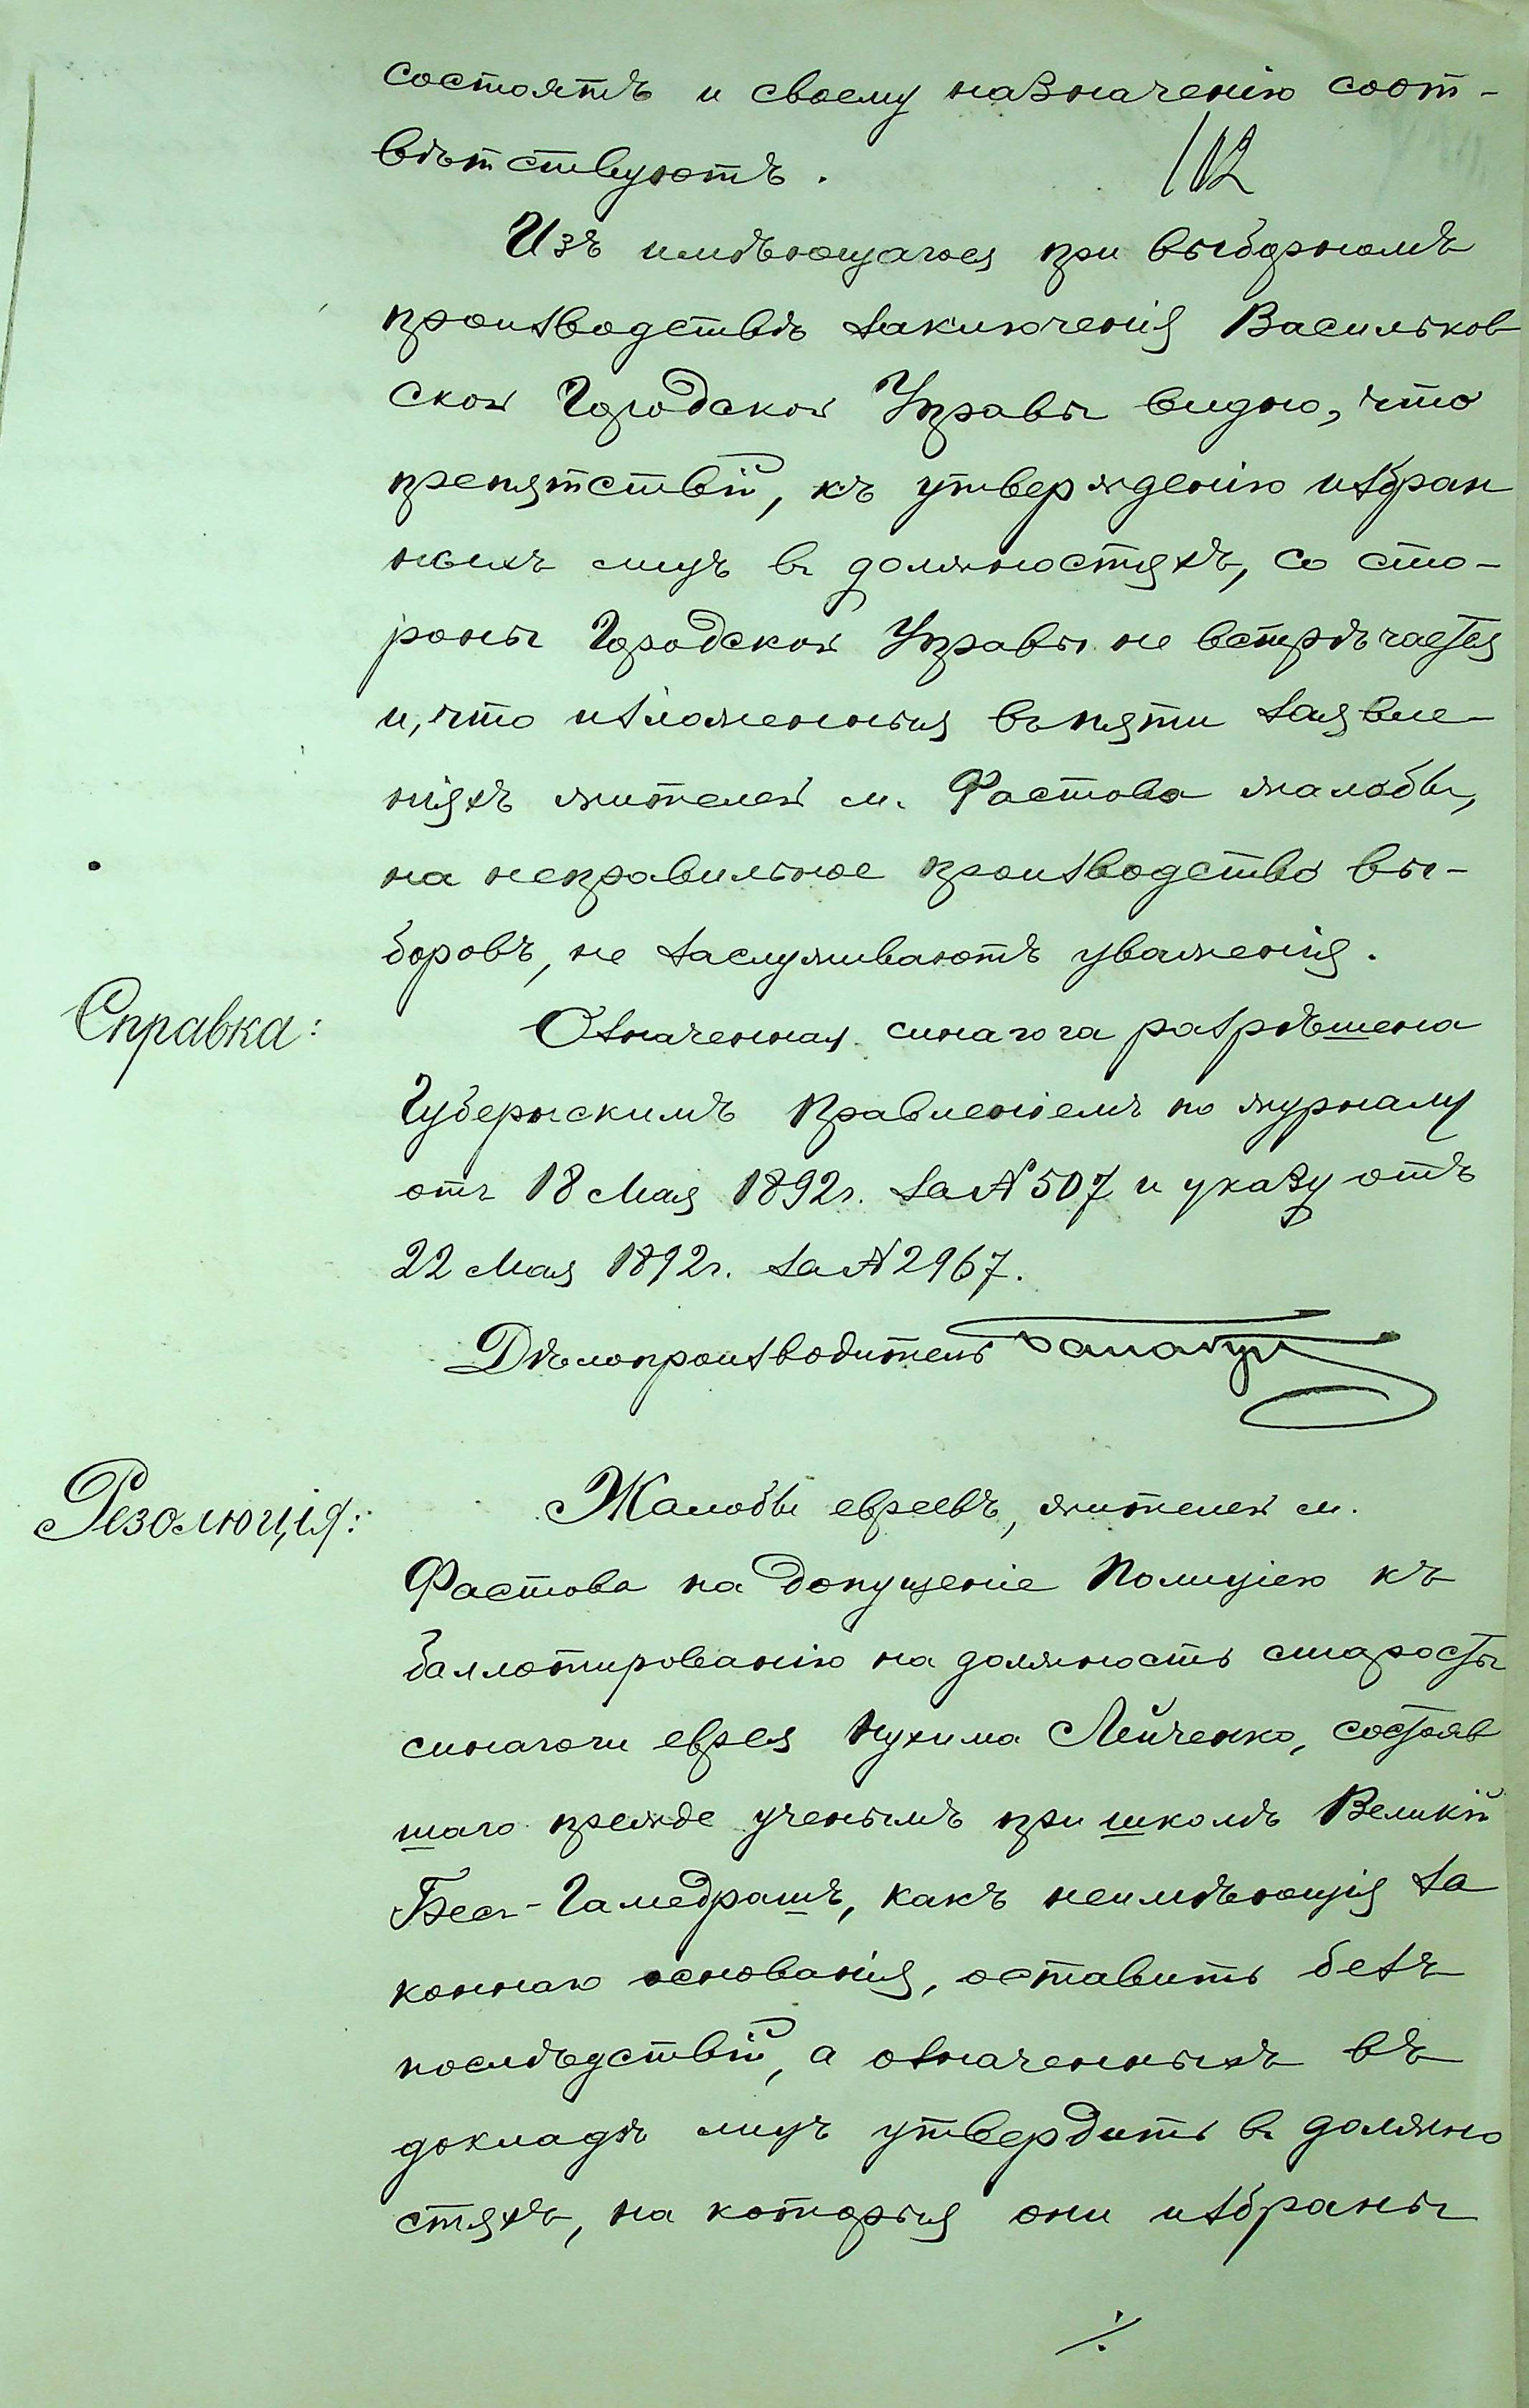 состоятъ и своему назначенію соот-
вѣтствуютъ.
112
Изъ имѣющагося при выборномъ
производствѣ заключенія Васильков
ской Городской Управы видно, что
препятствій, къ утвержденію избран
ныхъ лицъ въ должностяхъ, со сто-
роны Городской Управы не встрѣчается
и, что изложенныя въ пяти заявле-
ніяхъ жителей м. Фастова жалобы,
на неправильное производство вы-
боровъ, не заслуживаютъ уваженія.
Справка:
Означенная синагога разрѣшена
Губернскимъ Правленіемъ по журналу
отъ 18 Мая 1892 г. за № 507 и указу отъ
22 Мая 1892 г. за № 2967.
Дѣлопроизводитель
Резолюція:
Жалобы евреевъ, жителей м.
Фастова на допущеніе Полиціею къ
баллотированію на должность старосты
синагоги еврея Нухима Лейченко, состояв
шаго прежде ученымъ при школѣ Великій
Бес-Гамедрашъ, какъ неимѣющія за
коннаго основанія, оставить безъ
послѣдствій, а означенныхъ въ
докладѣ лицъ утвердить въ должно
стяхъ, на которыя они избраны
./.